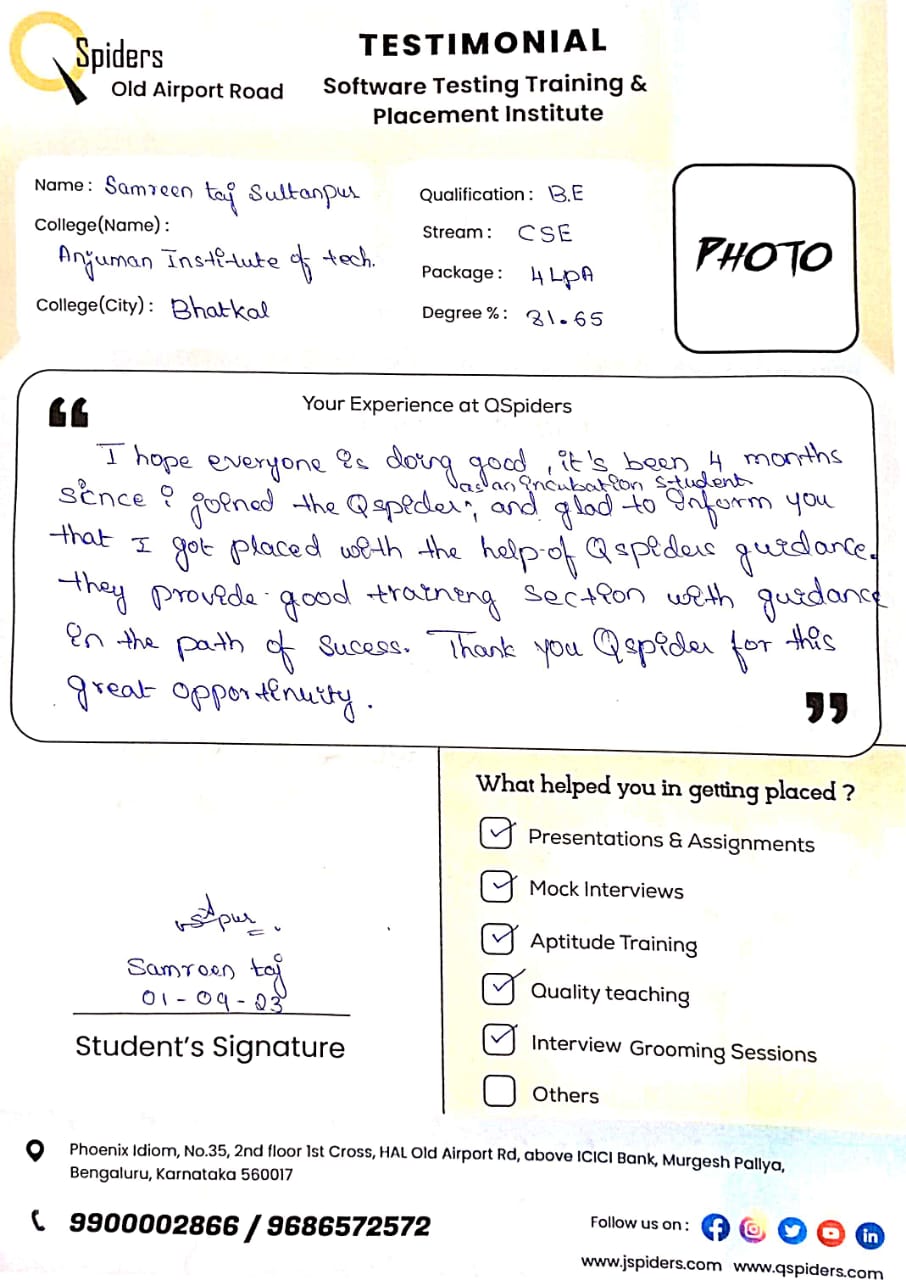 QSpiders
Old Airport Road
TESTIMONIAL
Software Testing Training &
Placement Institute
Name : Samreen taj Sultanpur
College(Name) :
Anjuman Institute of tech.
College(City) : Bhatkal
Qualification : B.E
Stream : CSE
Package : 4 LPA
Degree % : 81.65
PHOTO
Your Experience at QSpiders
I hope everyone is doing good, it's been 4 months
as an incubation student
since i joined the Qspider, and glad to Inform you
that I got placed with the help of Qspiders guidance.
they provide good training section with guidance
in the path of sucess. Thank you Qspider for this
great opportinuity.
What helped you in getting placed ?
Presentations & Assignments
Mock Interviews
Aptitude Training
Quality teaching
Interview Grooming Sessions
Others
Samreen taj
01-09-23
Student's Signature
Phoenix Idiom, No.35, 2nd floor 1st Cross, HAL Old Airport Rd, above ICICI Bank, Murgesh Pallya,
Bengaluru, Karnataka 560017
9900002866 / 9686572572
Follow us on :
www.jspiders.com www.qspiders.com